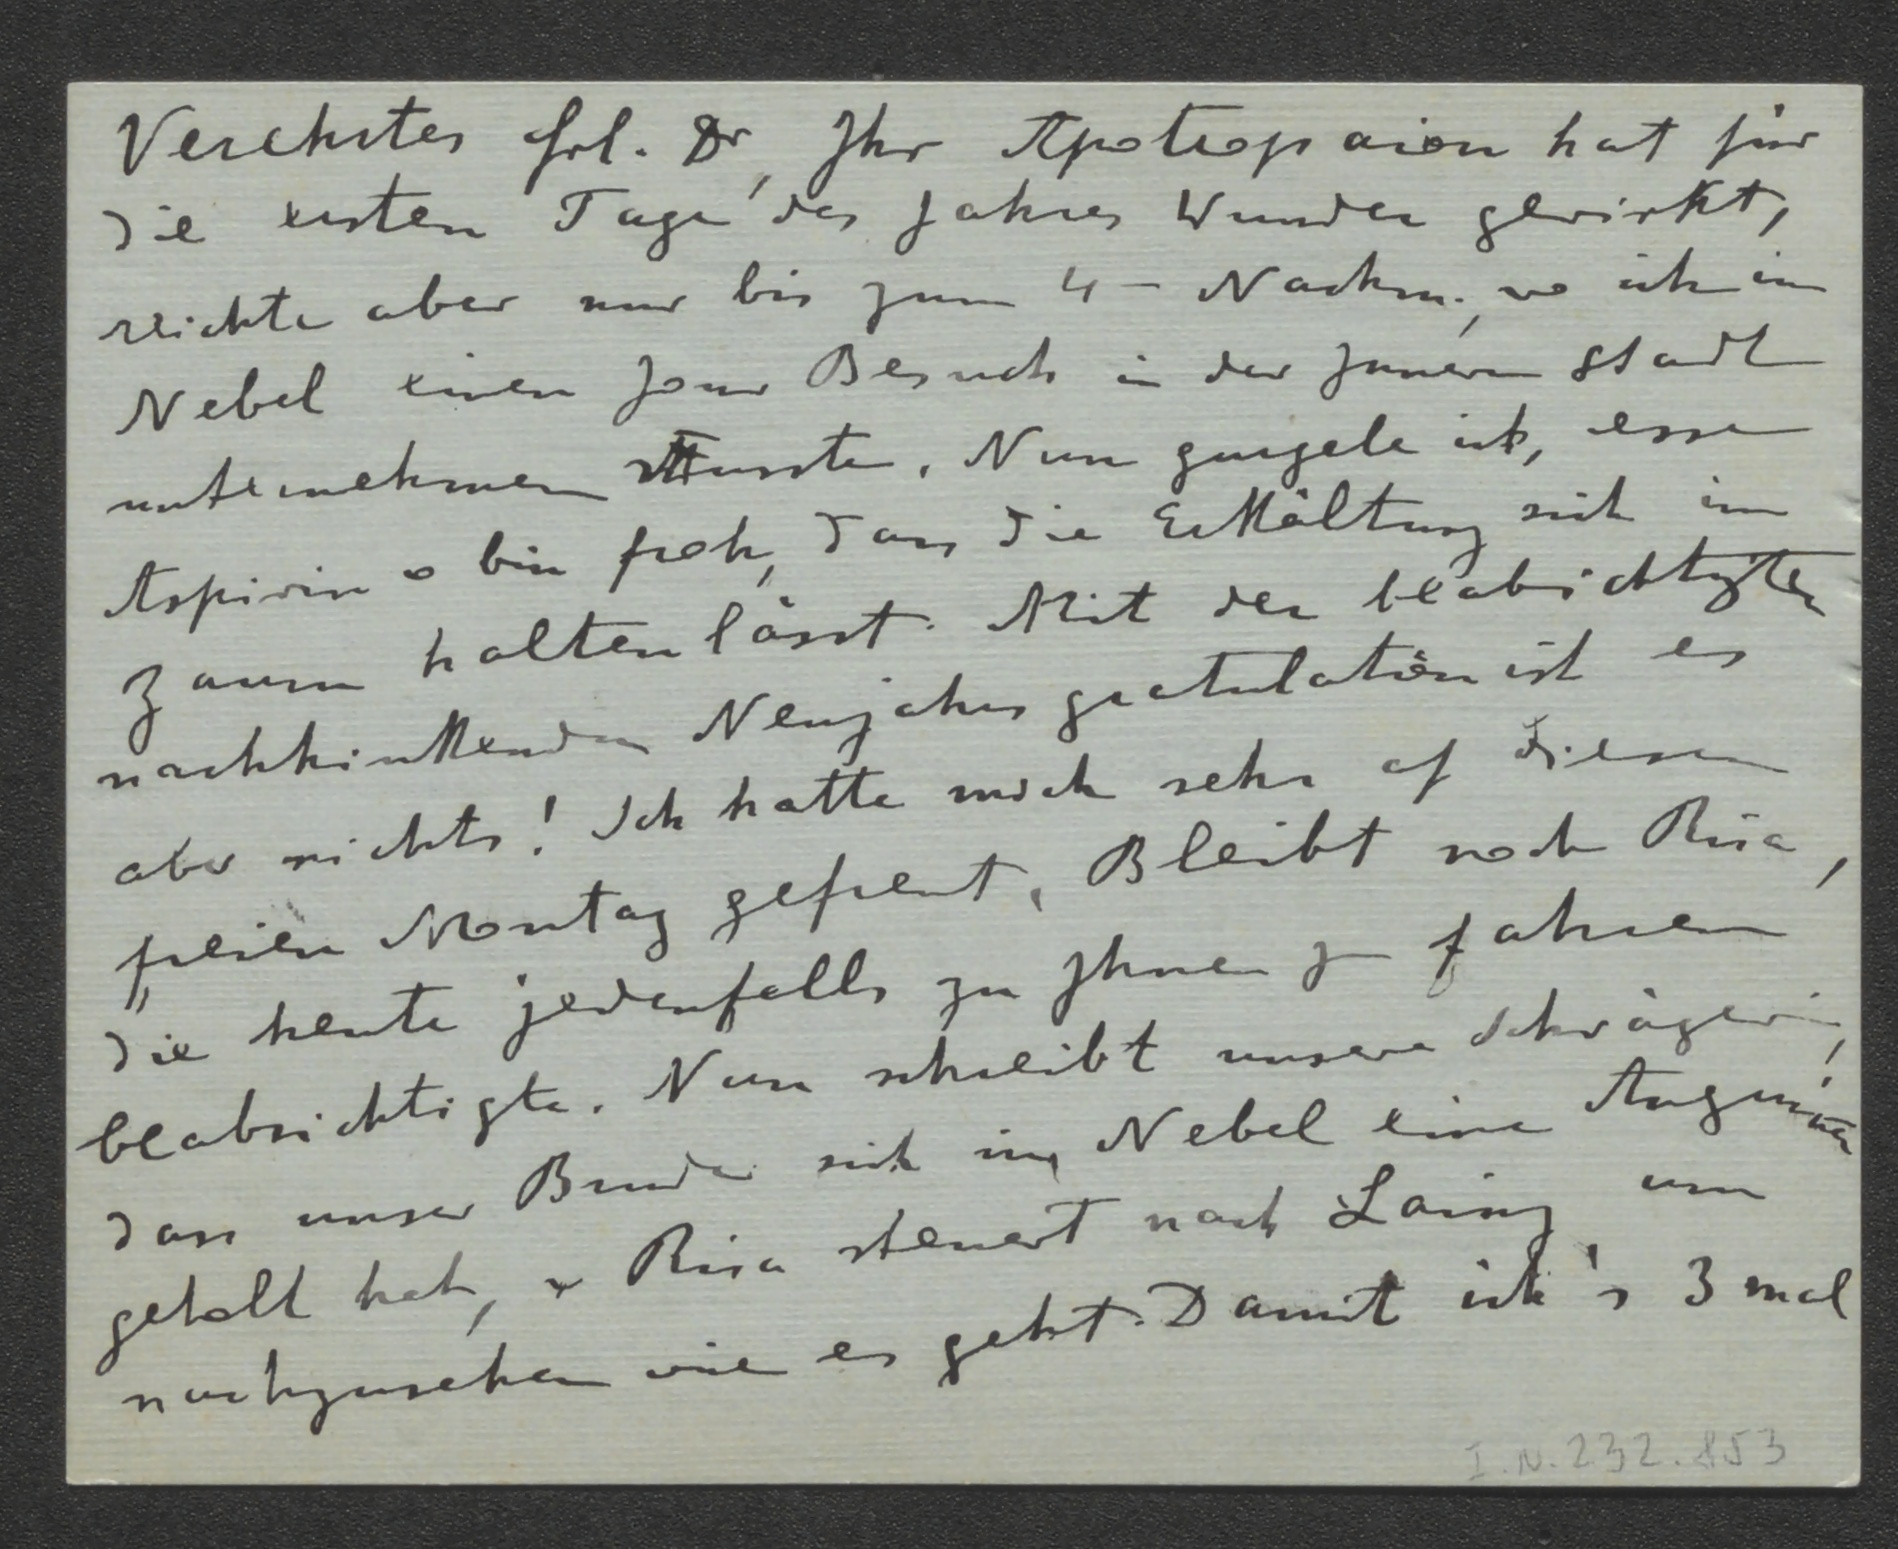 Verehrtes Frl. Dr, Ihr Apotropaion hat für
die ersten Tage des Jahres Wunder gewirkt,
reichte aber nur bis zum 4 - Nachm., wo ich im
Nebel einen Jour Besuch in der Innern Stadt
unternehmen musste. Nun gurgele ich, esse
Aspirin & bin froh, dass die Erkältung sich im
Zaum halten lässt. Mit der beabsichtigten
nachhinkenden Neujahrsgratulation ist es
aber nichts! Ich hatte mich sehr af diesen
freien Montag gefreut. Bleibt noch Risa,
die heute jedenfalls zu Ihnen zu fahren
beabsichtigte. Nun schreibt unsere Schwägerin,
dass unser Bruder sich im Nebel eine Angina
geholt hat, & Risa steuert nach Lainz um
nachzusehen wie es geht. Damit ich's 3 mal
I.N. 232.853